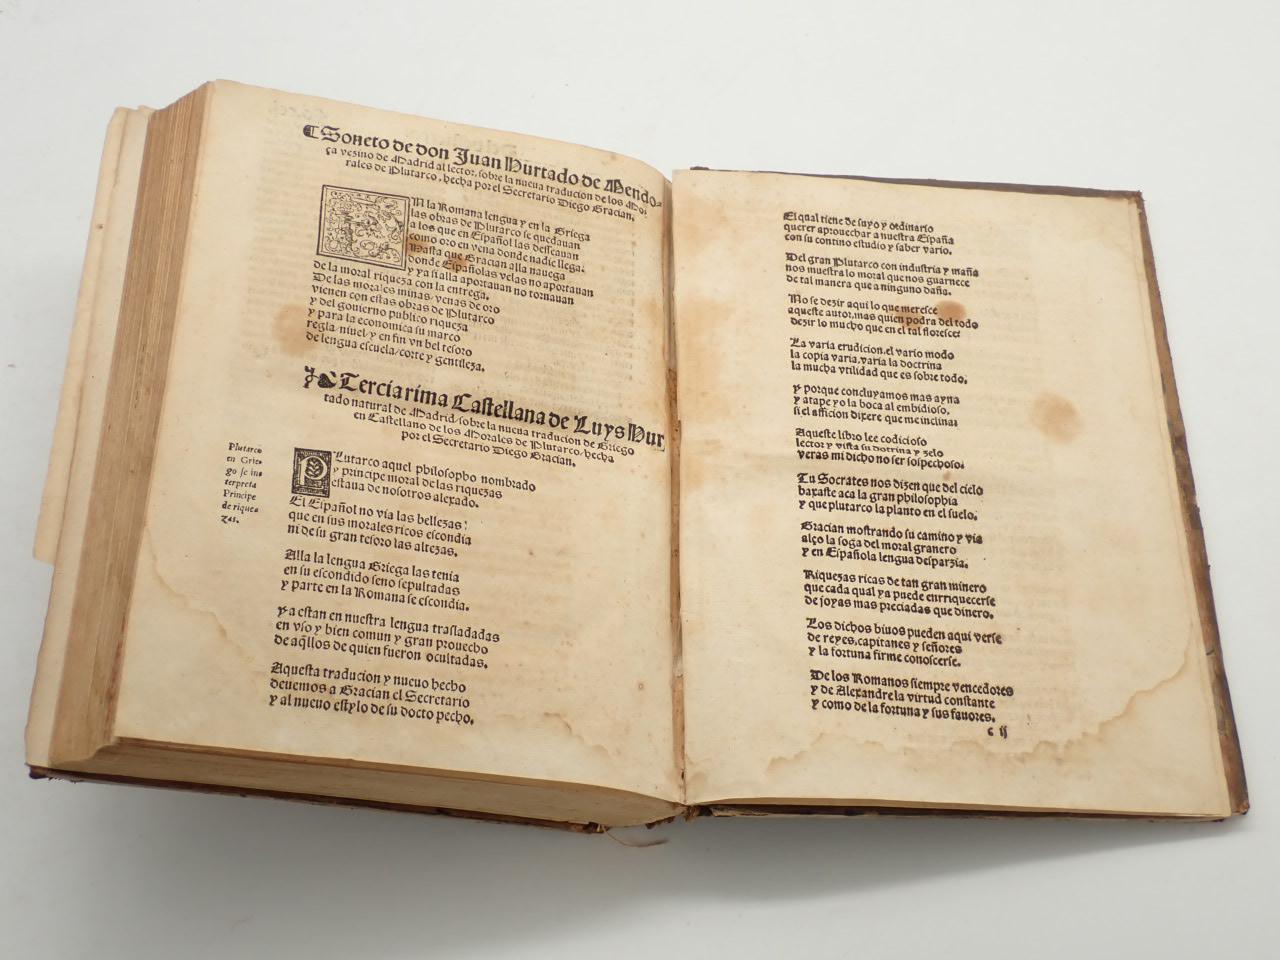 Soneto de don Juan Hurtado de Mendo-
ça vezino de Madrid al lector, sobre la nueua traducion de los Mo-
rales de Plutarco, hecha por el Secretario Diego Gracian.
EN la Romana lengua y en la Griega
las obras de Plutarco se quedauan
a los que en Español las desseauan
como oro en vena donde nadie llega.
Hasta que Gracian alla nauega
donde Españolas velas no aportauan
y ya si alla aportauan no tornauan
de la moral riqueza con la entrega.
De las morales minas, venas de oro
vienen con estas obras de Plutarco
y del gouierno publico riqueza
y para la economica su marco
regla/niuel/y en fin vn bel tesoro
de lengua escuela/corte y gentileza.
Tercia rima Castellana de Luys Hur
tado natural de Madrid/sobre la nueua traducion de Griego
en Castellano de los Morales de Plutarco/hecha
por el Secretario Diego Gracian.
Plutarco
en Grie-
go se in
terpreta
Principe
de rique-
zas.
PLutarco aquel philosopho nombrado
y principe moral de las riquezas
estaua de nosotros alexado.
El Español no via las bellezas:
que en sus morales ricos escondia
ni de su gran tesoro las altezas.
Alla la lengua Griega las tenia
en su escondido seno sepultadas
y parte en la Romana se escondia.
Ya estan en nuestra lengua trasladadas
en vso y bien comun y gran prouecho
de aq̃llos de quien fueron ocultadas.
Aquesta traducion y nueuo hecho
deuemos a Gracian el Secretario
y al nueuo estylo de su docto pecho.
El qual tiene de suyo y ordinario
querer aprouechar a nuestra España
con su contino estudio y saber vario.
Del gran Plutarco con industria y maña
nos muestra lo moral que nos guarnece
de tal manera que a ninguno daña.
No se dezir aqui lo que meresce
aqueste autor, mas quien podra del todo
dezir lo mucho que en el tal floresce:
La varia erudicion, el vario modo
la copia varia, varia la doctrina
la mucha vtilidad que es sobre todo.
Y porque concluyamos mas ayna
y atape yo la boca al embidioso,
si el afficion dixere que me inclina:
Aqueste libro lee codicioso
lector y vista su dotrina y zelo
veras mi dicho no ser sospechoso:
Tu Socrates nos dizen que del cielo
baxaste aca la gran philosophia
y que plutarco la planto en el suelo.
Gracian mostrando su camino y via
alço la soga del moral granero
y en Española lengua desparzia.
Riquezas ricas de tan gran minero
que cada qual ya puede enrriquecerse
de joyas mas preciadas que dinero.
Los dichos biuos pueden aqui verse
de reyes, capitanes y señores
y la fortuna firme conoscerse.
De los Romanos siempre vencedores
y de Alexandre la virtud constante
y como de la fortuna y sus fauores.
c ij